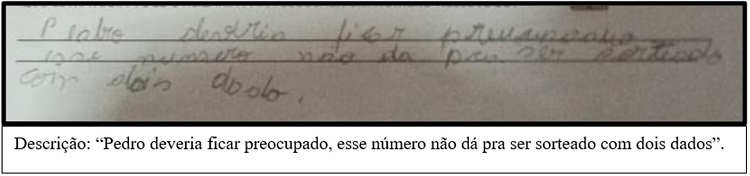 Pedro deveria ficar preucupado
esse numero não da pra ser sorteado
com dois dado.
Descrição: “Pedro deveria ficar preocupado, esse número não dá pra ser sorteado com dois dados”.